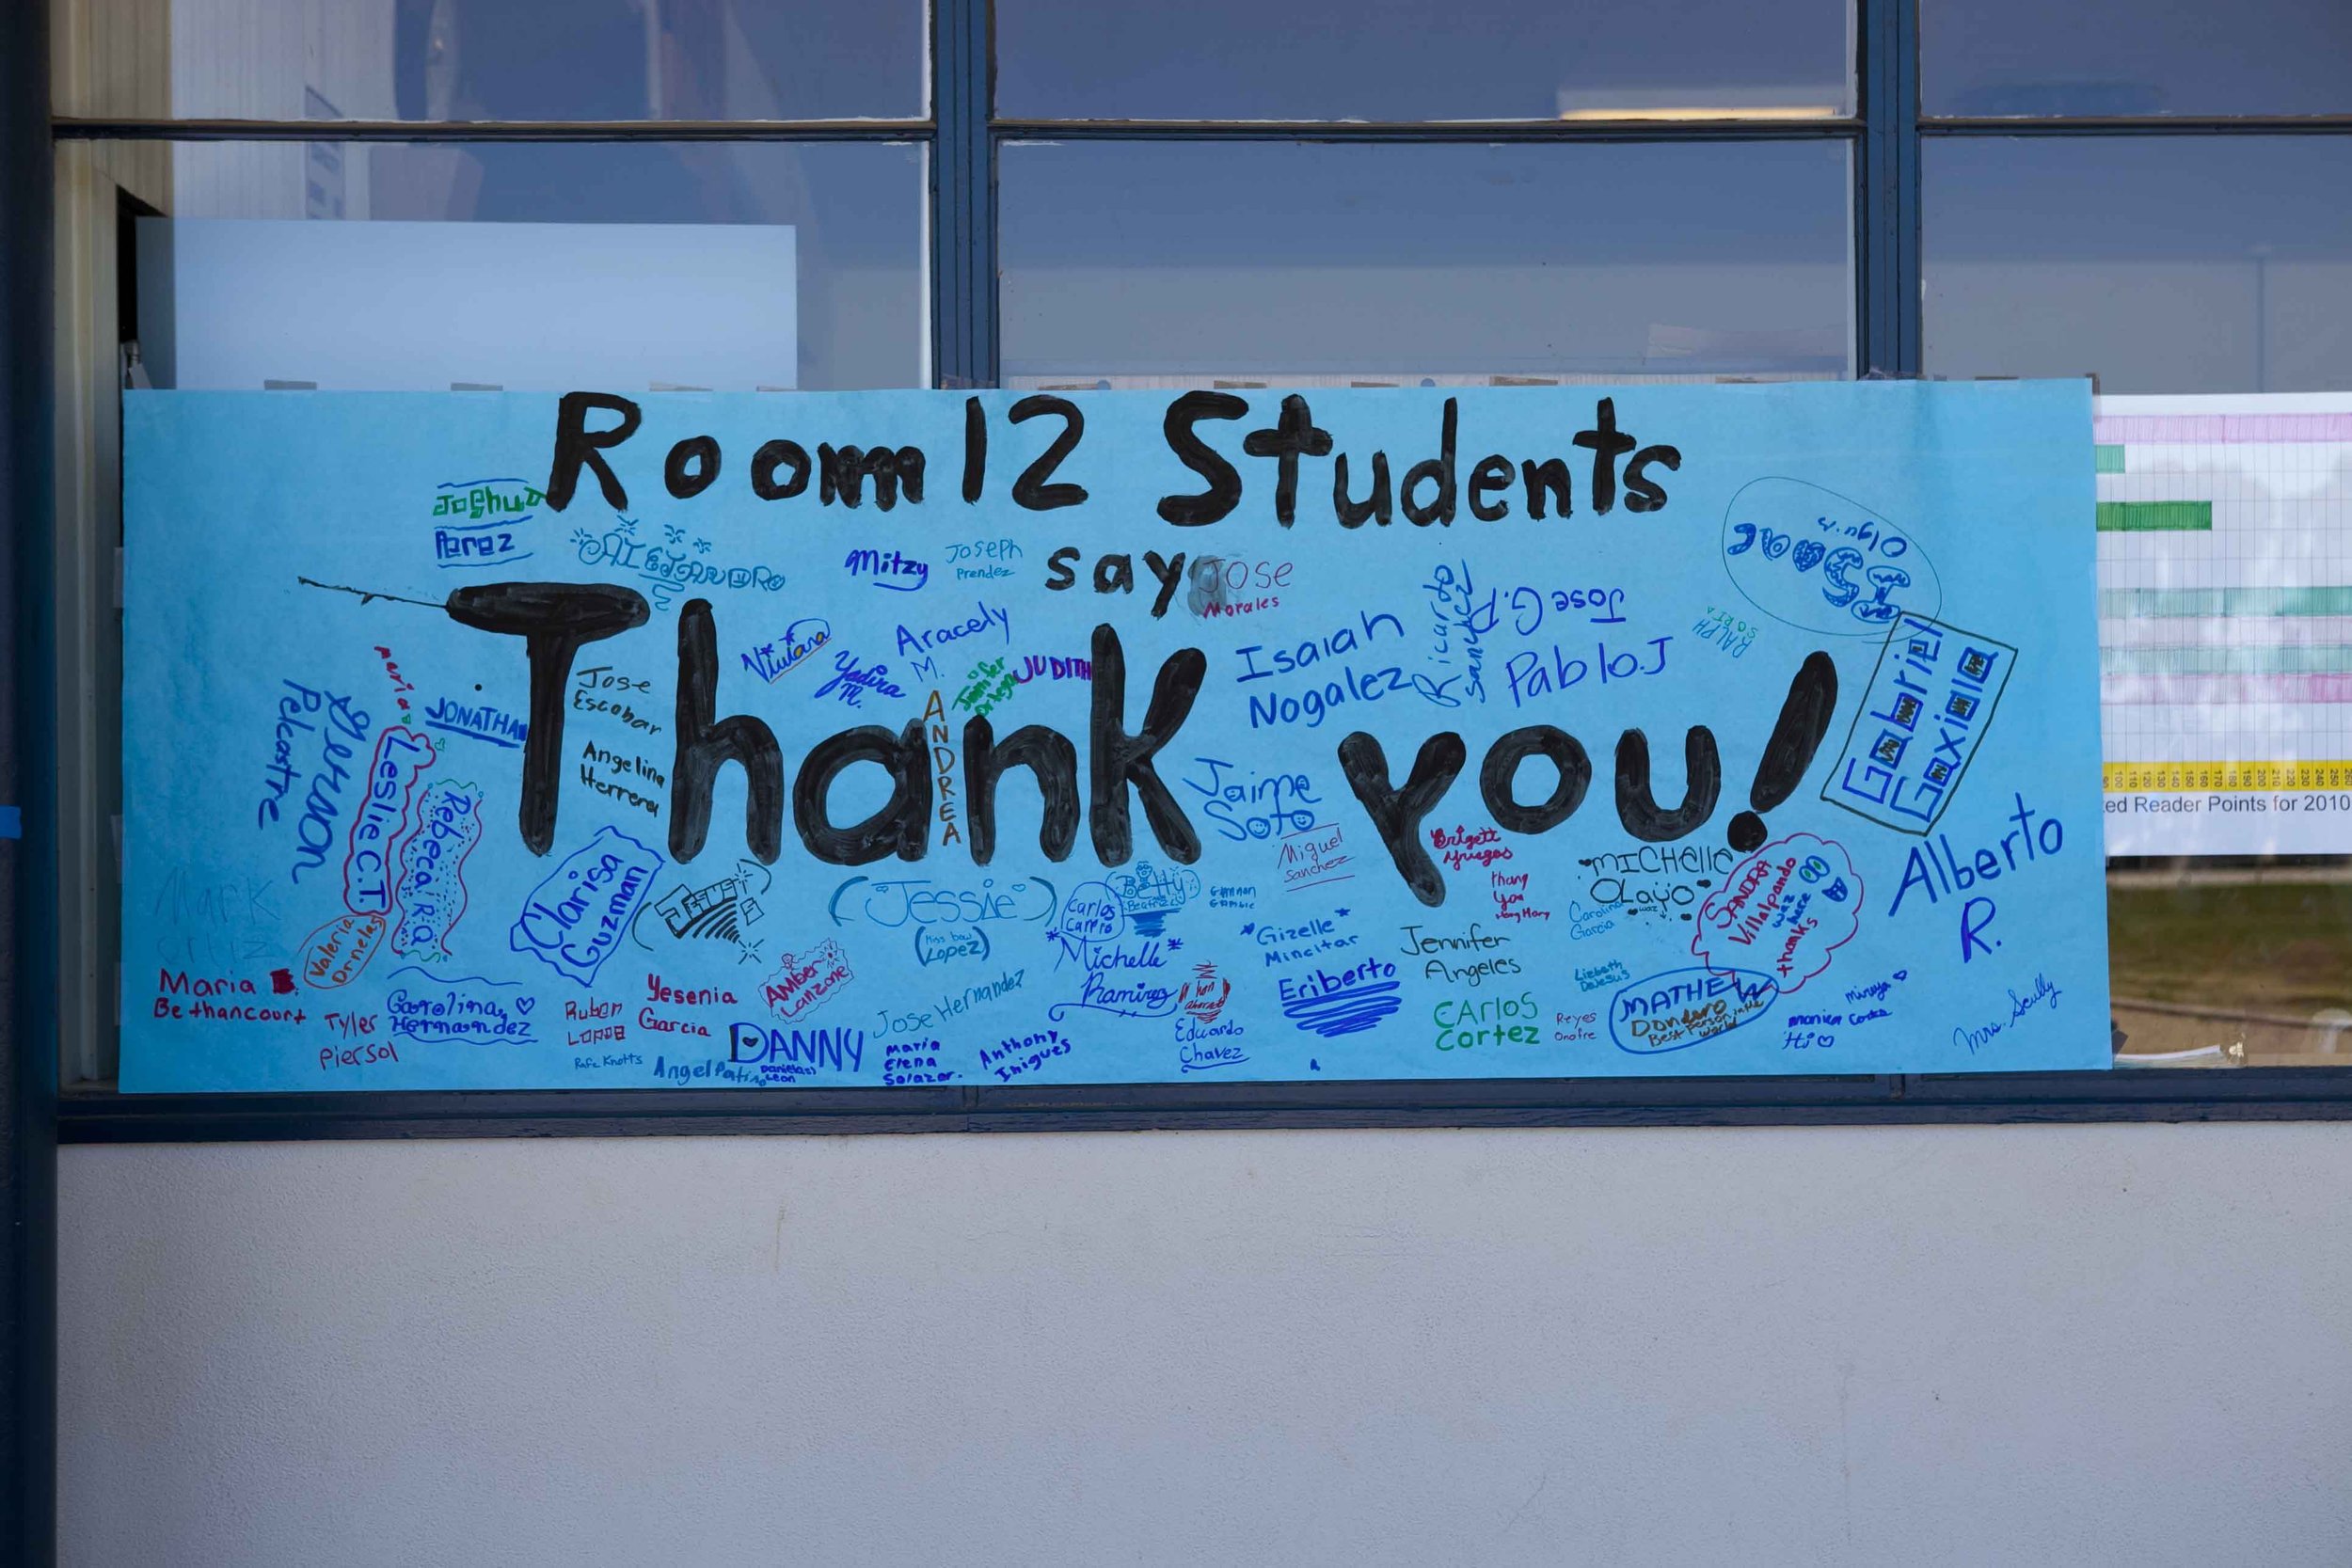 Room 12 Students
say
Thank you!
Joshua
Perez
Alejandro
Mitzy
Joseph
Prendez
Jose
Morales
Viviana
Yadira
M.
Aracely
M.
Jennifer
Ortega
JUDITH
ANDREA
Isaiah
Nogalez
Ricardo
Sanchez
Jose G.
Pablo.J
RALPH
Isaac
Gabriel
Gaxiola
Jose
Escobar
Angelina
Herrera
Maria
JONATHAN
Pelcastre
Leslie C.T.
Rebeca R.Q
Jaime
Soto
Miguel
Sanchez
Mark
ortiz
Valeria
Ornelas
Clarisa
Guzman
Jesus
(Jessie)
(Miss bow
Lopez)
Carlos
Carrio
Betty
Beatriz
thang
you
MICHElle
OLayo
waz
Carolina
Garcia
SANDRA
Villalpando
waz
here
thanks
Alberto
R.
Maria
Bethancourt
Tyler
Piersol
Carolina
Hernandez
Ruben
Yesenia
Garcia
Amber
Lanzone
Jose Hernandez
*Michelle*
Ramirez
*Gizelle*
Mincitar
Eriberto
Jennifer
Angeles
Lizbeth
DeJesus
Rafe Knotts
Angel Patino
DANNY
Daniela
Leon
Maria
Elena
Salazar.
Anthony
Inigues
Eduardo
Chavez
CArlos
Cortez
Reyes
Onofre
MATHEW
Dondero
Best Person in the
World
mireya
monica
Hi
Mrs. Scully
100 110 120 130 140 150 160 170 180 190 200 210 220 230 240
ed Reader Points for 2010